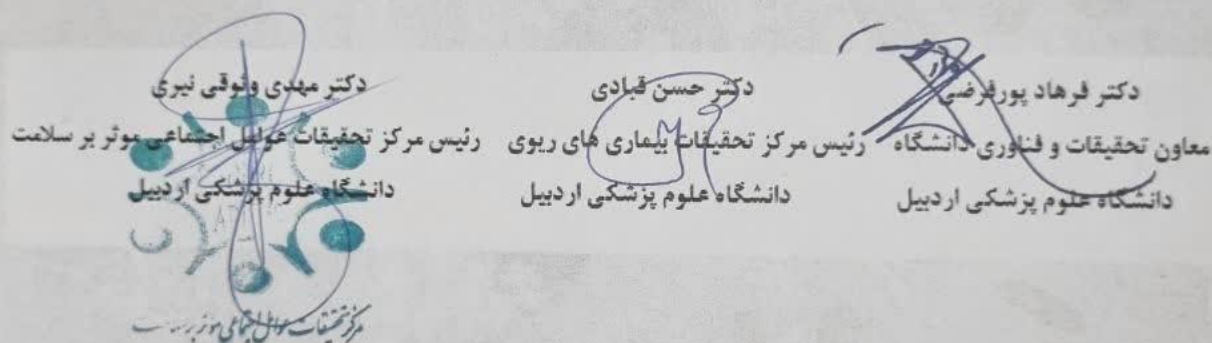 دکتر فرهاد پورفرضی
معاون تحقیقات و فناوری دانشگاه
دانشگاه علوم پزشکی اردبیل
دکتر حسن قبادی
رئیس مرکز تحقیقات بیماری های ریوی
دانشگاه علوم پزشکی اردبیل
دکتر مهدی وثوقی نیری
رئیس مرکز تحقیقات عوامل اجتماعی موثر بر سلامت
دانشگاه علوم پزشکی اردبیل
مرکز تحقیقات عوامل اجتماعی موثر بر سلامت